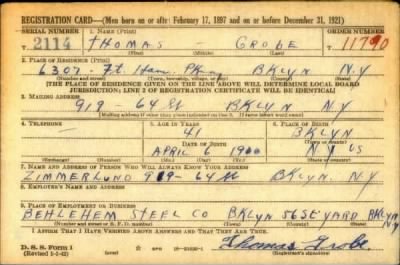 REGISTRATION CARD—(Men born on or after February 17, 1897 and on or before December 31, 1921)
SERIAL NUMBER 1. NAME (Print) ORDER NUMBER
T 2114 THOMAS GROBE T 11790
(First) (Middle) (Last)
2. PLACE OF RESIDENCE (Print)
6307 Ft. Ham Pkwy BKLYN N.Y
(Number and street) (Town, township, village, or city) (County) (State)
[THE PLACE OF RESIDENCE GIVEN ON THE LINE ABOVE WILL DETERMINE LOCAL BOARD
JURISDICTION; LINE 2 OF REGISTRATION CERTIFICATE WILL BE IDENTICAL]
3. MAILING ADDRESS
919 - 64 St BKLYN NY
[Mailing address if other than place indicated on line 2. If same insert word same]
4. TELEPHONE 5. AGE IN YEARS 6. PLACE OF BIRTH
— 41 BKLYN
DATE OF BIRTH (Town or county)
APRIL 6 1900 N.Y US
(Exchange) (Number) (Mo.) (Day) (Yr.) (State or country)
7. NAME AND ADDRESS OF PERSON WHO WILL ALWAYS KNOW YOUR ADDRESS
ZIMMERLUND 919 - 64 St BKLYN. N.Y
8. EMPLOYER'S NAME AND ADDRESS
9. PLACE OF EMPLOYMENT OR BUSINESS
BEHLEHEM STEEL CO BKLYN 56 ST YARD BKLYN N.Y
(Number and street or R. F. D. number) (Town) (County) (State)
I AFFIRM THAT I HAVE VERIFIED ABOVE ANSWERS AND THAT THEY ARE TRUE.
D. S. S. Form 1
(Revised 1-2-42) (over) Thomas Grobe
(Registrant's signature)